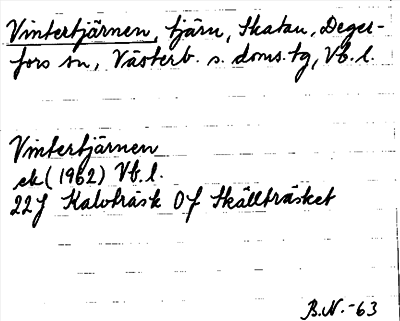 Vintertjärnen, tjärn, Skatan, Deger-
fors sn, Västerb. s. doms. tg, Vb. l.
Vintertjärnen
ek (1962) Vb. l.
22J Kalvträsk 0f Skällträsket
B.N.-63